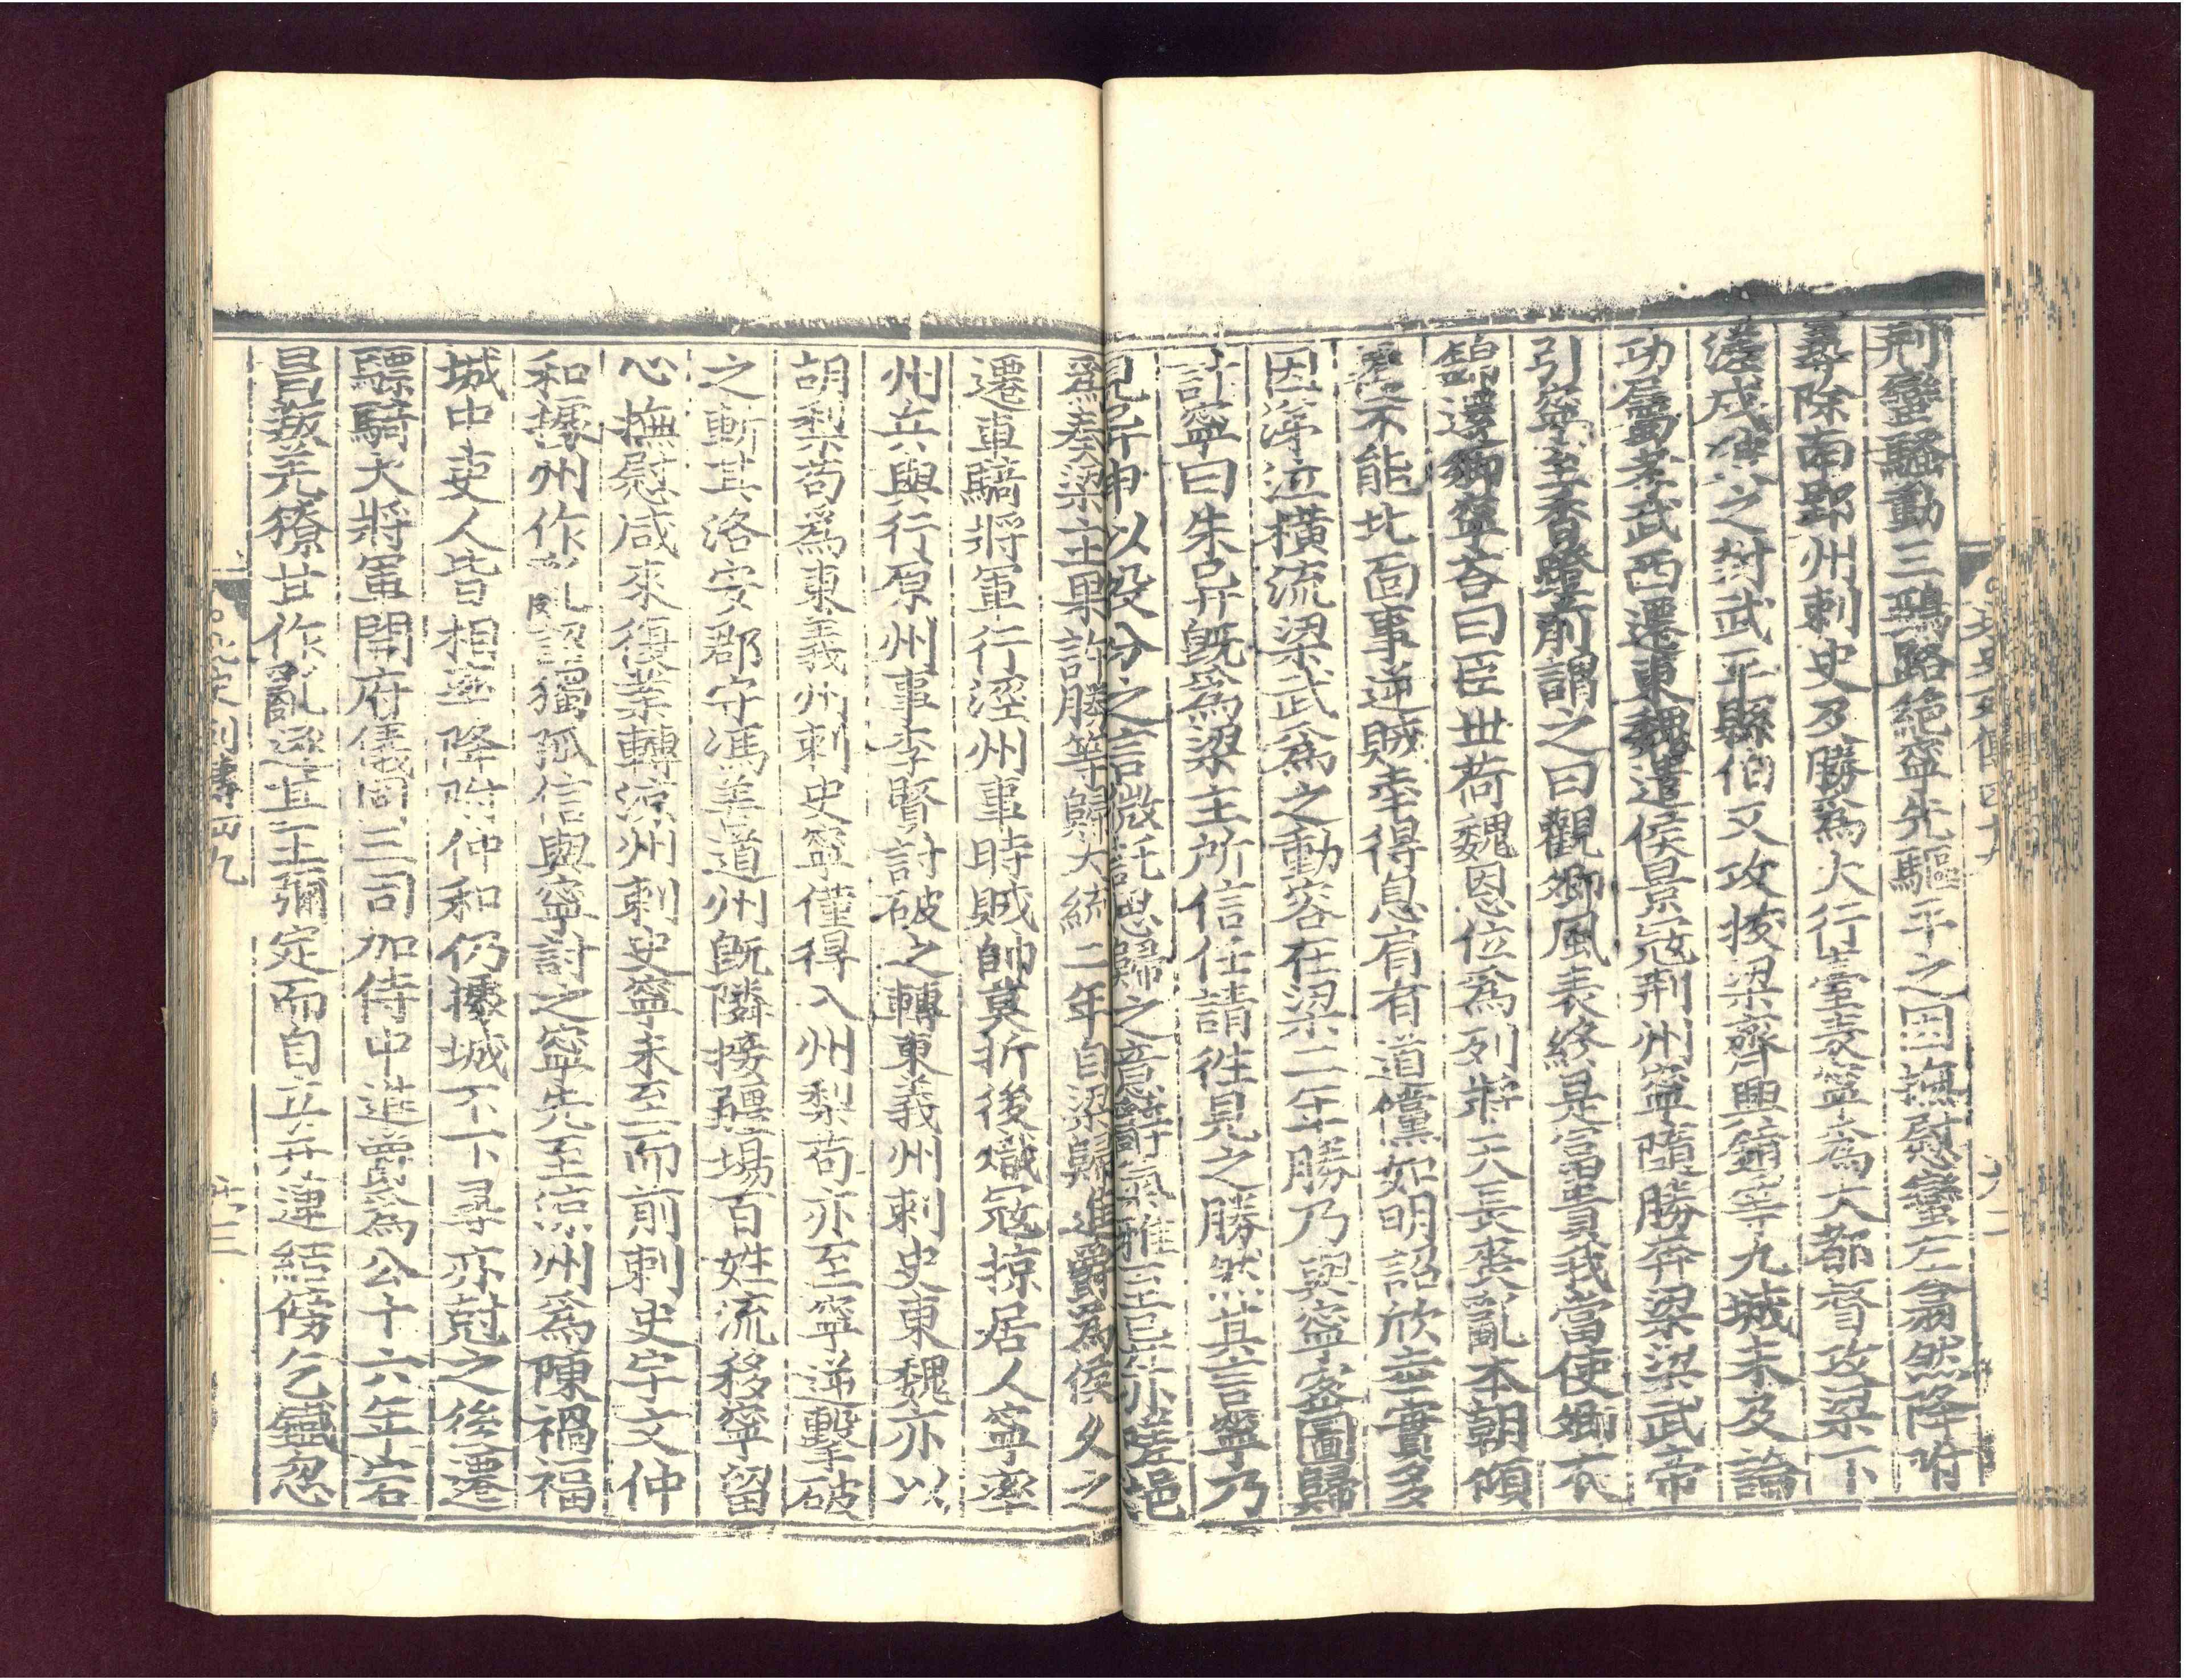 荆蠻騷動三鵶路絶寧先驅平之因撫慰蠻左翕然降附
尋除南郢州刺史及勝爲大行臺表寧爲大都督攻梁下
溠戍破之封武平縣伯又攻拔梁齊興鎮等九城未及論
功屬孝武西遷東魏遣侯景寇荆州寧隨勝奔梁梁武帝
引寧至香蹬前謂之曰觀卿風表終是富貴我當使卿衣
錦還鄉寧荅曰臣世荷魏恩位爲列將天長喪亂本朝傾
不能北面事逆賊幸得息肩有道儻如明詔欣幸實多
因涕泣横流梁武爲之動容在梁二年勝乃與寧密圖歸
計寧曰朱异旣爲梁主所信任請往見之勝然其言寧乃
見异申以投分之言微託思歸之意辭氣雅至异亦嗟挹
爲奏梁主果許勝等歸大統二年自梁歸進爵爲侯久之
遷車騎將軍行涇州事時賊帥莫折後熾寇掠居人寧率
州兵與行原州事李賢討破之轉東義州刺史東魏亦以
胡梨苟爲東義州刺史寧僅得入州梨苟亦至寧逆擊破
之斬其洛安郡守馮善道州旣隣接疆場百姓流移寧留
心撫慰咸來復業轉涼州刺史寧未至而前刺史宇文仲
和據州作亂詔獨孤信與寧討之寧先至涼州爲陳禍福
城中吏人皆相率降附仲和仍據城不下尋亦尅之後遷
驃騎大將軍開府儀同三司加侍中進爵爲公十六年宕
昌叛羌獠甘作亂逐其王彌定而自立并連結傍乞鐵忽
北史列傳四十九
北史列傳四九